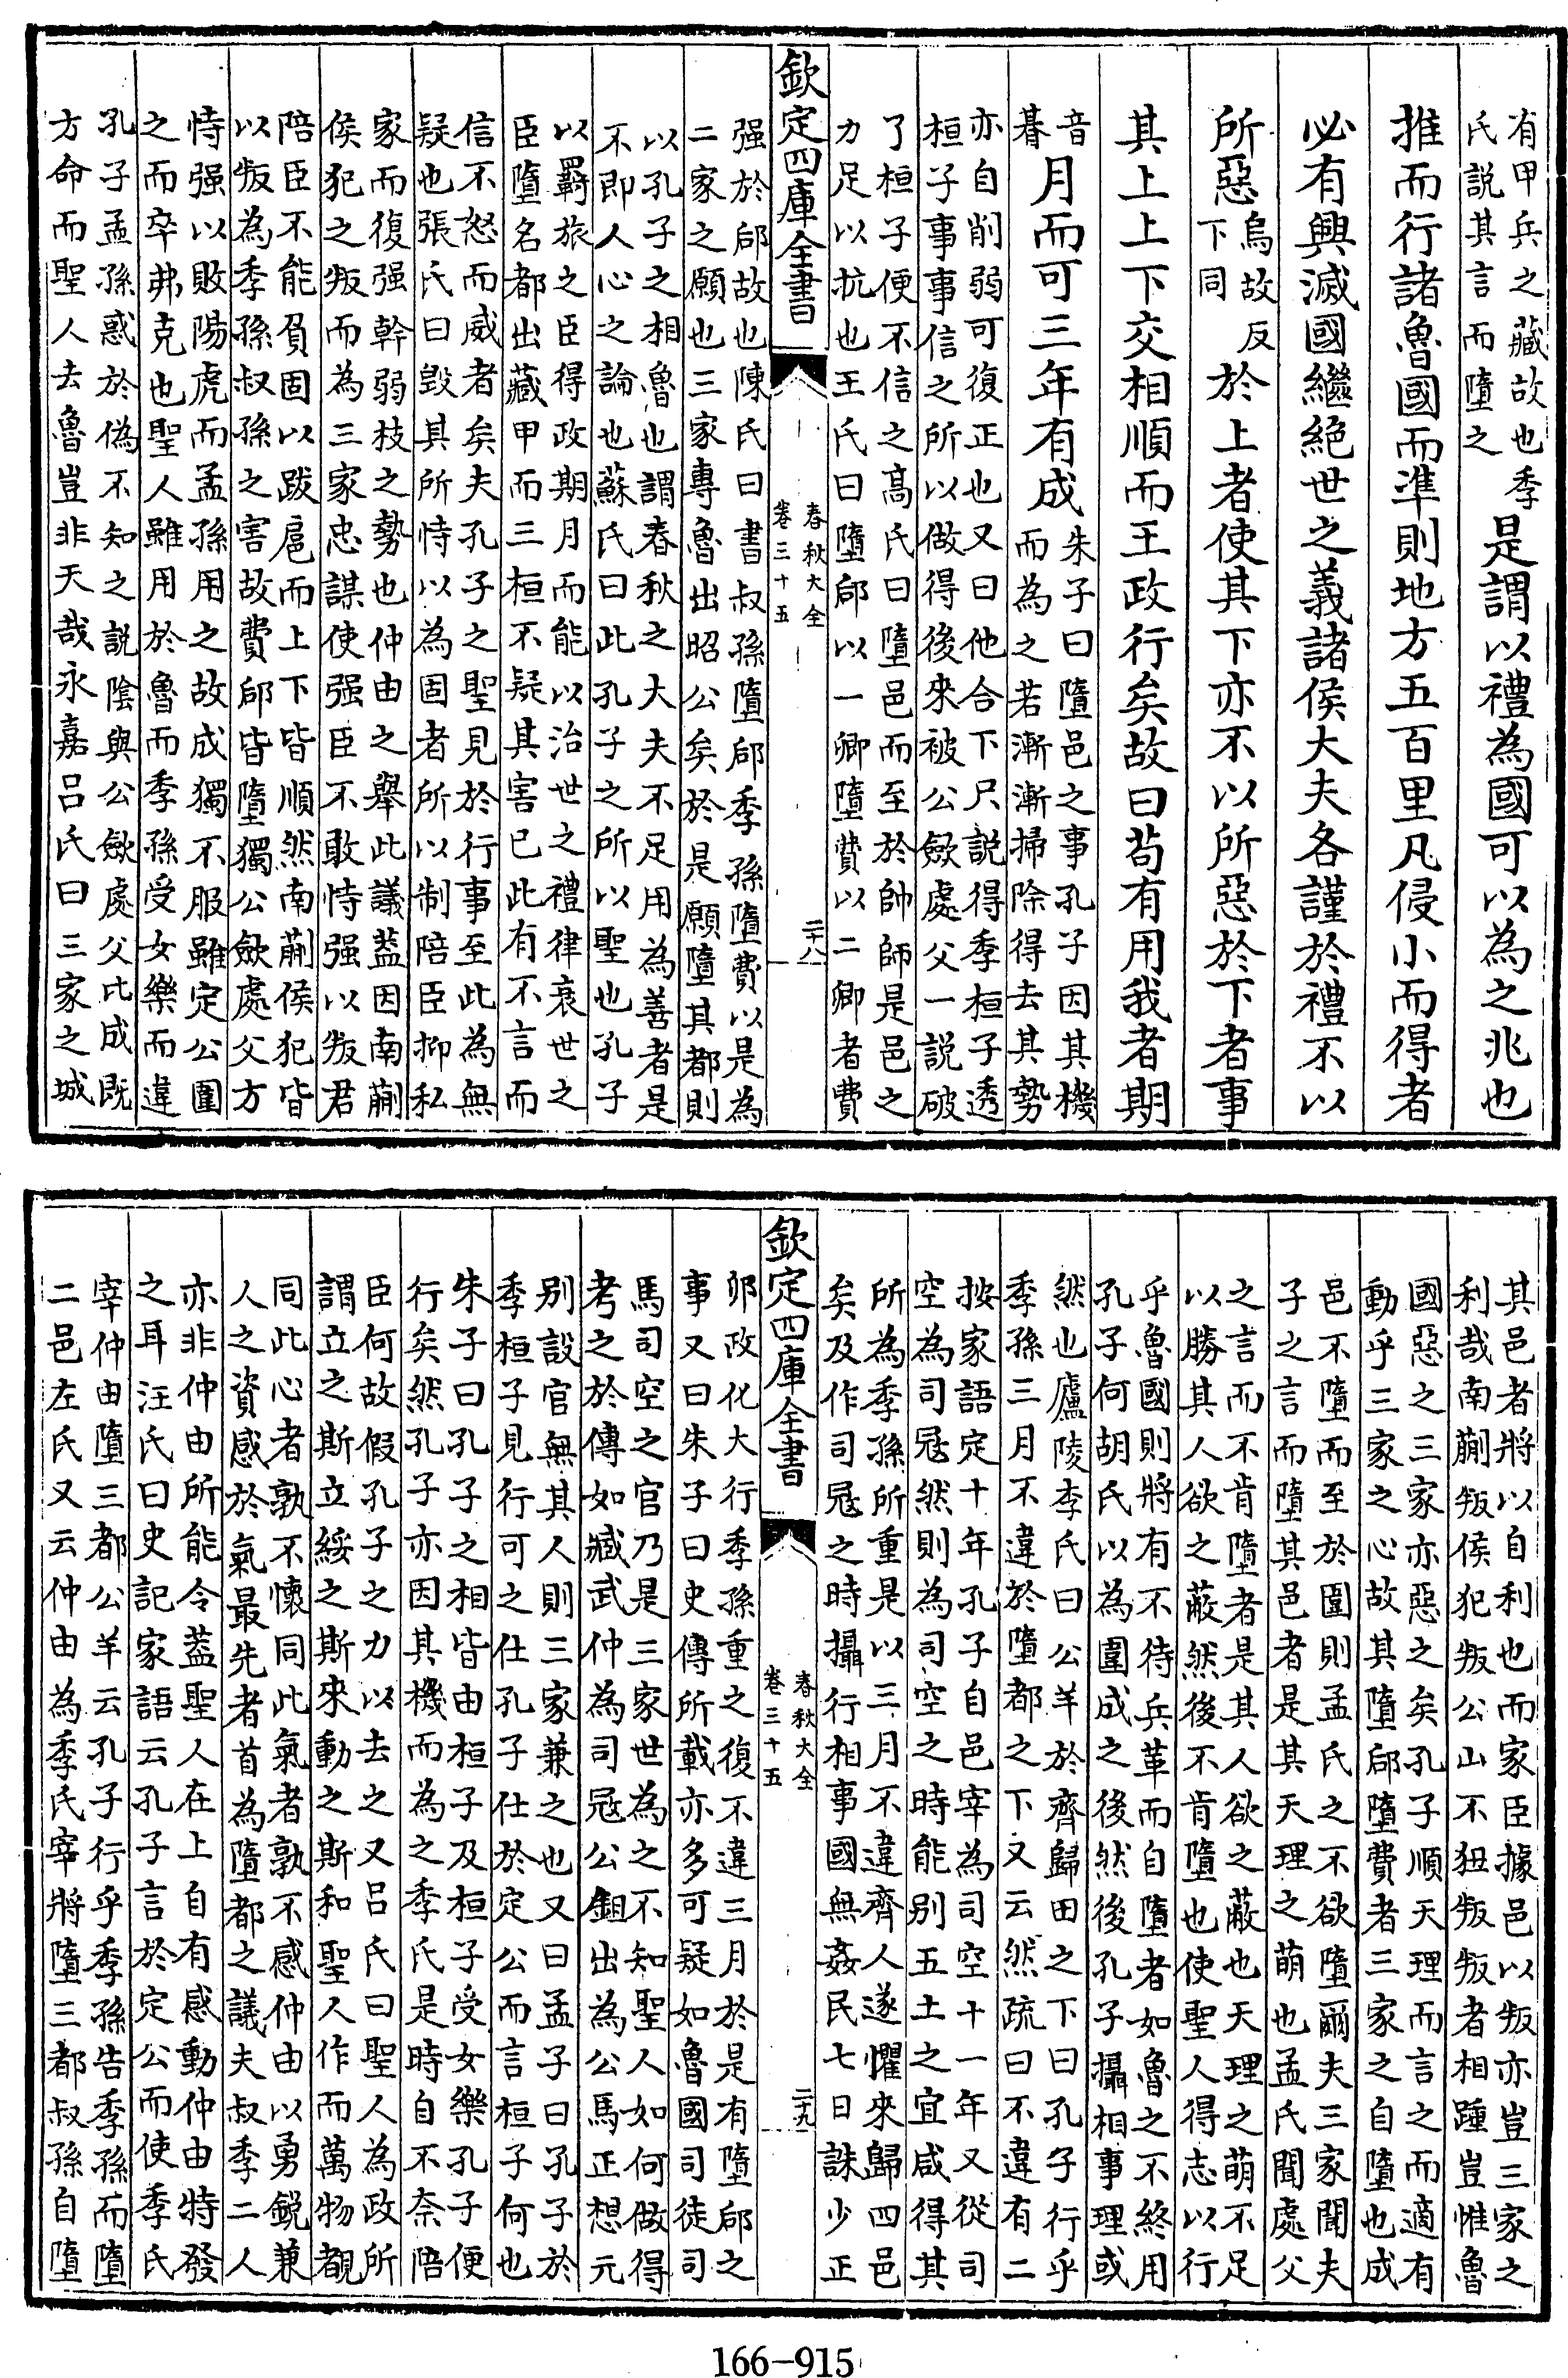 有甲兵之藏故也季
氏説其言而墮之
是謂以禮為國可以為之兆也
推而行諸魯國而準則地方五百里凡侵小而得者
必有興滅國繼絶世之義諸侯大夫各謹於禮不以
所惡
烏故反
下同
於上者使其下亦不以所惡於下者事
其上上下交相順而王政行矣故曰苟有用我者期
音
朞
月而可三年有成
朱子曰墮邑之事孔子因其機
而為之若漸漸掃除得去其勢
亦自削弱可復正也又曰他合下只説得季桓子透
桓子事事信之所以做得後來被公斂處父一説破
了桓子便不信之髙氏曰墮邑而至於帥師是邑之
力足以抗也王氏曰墮郈以一卿墮費以二卿者費
欽定四庫全書
春秋大全
卷三十五
二十八
强於郈故也陳氏曰書叔孫墮郈季孫墮費以是為
二家之願也三家專魯出昭公矣於是願墮其都則
以孔子之相魯也謂春秋之大夫不足用為善者是
不即人心之論也蘇氏曰此孔子之所以聖也孔子
以羈旅之臣得政期月而能以治世之禮律衰世之
臣墮名都出藏甲而三桓不疑其害已此有不言而
信不怒而威者矣夫孔子之聖見於行事至此為無
疑也張氏曰毁其所恃以為固者所以制陪臣抑私
家而復强幹弱枝之勢也仲由之舉此議葢因南蒯
侯犯之叛而為三家忠謀使强臣不敢恃强以叛君
陪臣不能負固以跋扈而上下皆順然南蒯侯犯皆
以叛為季孫叔孫之害故費郈皆墮獨公斂處父方
恃强以敗陽虎而孟孫用之故成獨不服雖定公圍
之而卒弗克也聖人雖用於魯而季孫受女樂而違
孔子孟孫惑於偽不知之説隂與公斂處父比成既
方命而聖人去魯豈非天哉永嘉吕氏曰三家之城
其邑者將以自利也而家臣據邑以叛亦豈三家之
利哉南蒯叛侯犯叛公山不狃叛叛者相踵豈惟魯
國惡之三家亦惡之矣孔子順天理而言之而適有
動乎三家之心故其墮郈墮費者三家之自墮也成
邑不墮而至於圍則孟氏之不欲墮爾夫三家聞夫
子之言而墮其邑者是其天理之萌也孟氏聞處父
之言而不肯墮者是其人欲之蔽也天理之萌不足
以勝其人欲之蔽然後不肯墮也使聖人得志以行
乎魯國則將有不待兵革而自墮者如魯之不終用
孔子何胡氏以為圍成之後然後孔子攝相事理或
然也廬陵李氏曰公羊於齊歸田之下曰孔子行乎
季孫三月不違於墮都之下又云然疏曰不違有二
按家語定十年孔子自邑宰為司空十一年又從司
空為司冦然則為司空之時能别五土之宜咸得其
所為季孫所重是以三月不違齊人遂懼來歸四邑
矣及作司冦之時攝行相事國無姦民七日誅少正
欽定四庫全書
春秋大全
卷三十五
二十九
卯政化大行季孫重之復不違三月於是有墮郈之
事又曰朱子曰史傳所載亦多可疑如魯國司徒司
馬司空之官乃是三家世為之不知聖人如何做得
考之於傳如臧武仲為司冦公鉏出為公馬正想元
别設官無其人則三家兼之也又曰孟子曰孔子於
季桓子見行可之仕孔子仕於定公而言桓子何也
朱子曰孔子之相皆由桓子及桓子受女樂孔子便
行矣然孔子亦因其機而為之季氏是時自不奈陪
臣何故假孔子之力以去之又吕氏曰聖人為政所
謂立之斯立綏之斯來動之斯和聖人作而萬物覩
同此心者孰不懷同此氣者孰不感仲由以勇鋭兼
人之資感於氣最先者首為墮都之議夫叔季二人
亦非仲由所能令葢聖人在上自有感動仲由特發
之耳汪氏曰史記家語云孔子言於定公而使季氏
宰仲由墮三都公羊云孔子行乎季孫告季孫而墮
二邑左氏又云仲由為季氏宰將墮三都叔孫自墮
166-915